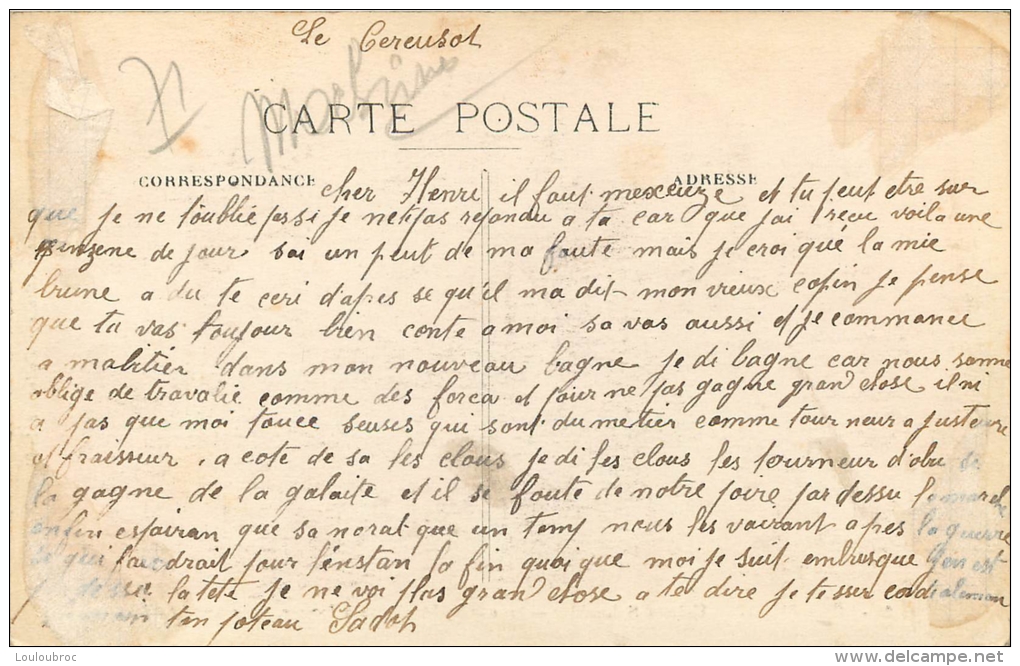 Le Cereusot
CARTE POSTALE
CORRESPONDANCE
ADRESSE
cher Henri il faut mexcuze et tu peut etre sur
que je ne t'oublie pas si je net pas repondu a ta car que jai recu voila une
quinzene de jour sai un peut de ma faute mais je croi qué la mie
brune a du te ecri d'apres se qu'il ma dit mon vieux copin je pense
que tu vas toujour bien conte a moi sa vas aussi et je commance
a mabitier dans mon nouveau bagne je di bagne car nous somme
oblige de travalie comme des forca et pour ne pas gagne grand chose il ni
a pas que moi touce seuses qui sont du metier comme tourneur ajusteure
et fraisseur, a cote de sa les clous je di les clous les tourneur d'obu se
la gagne de la galaite et il se foute de notre poire par dessu la marche
enfin espairan que sa norat que un temp nous les vairant apres la guerre
se qui faudrait pour l'enstan la fin quoi que moi je suit embusque j'en est
la tete je ne voi plas grand chose a te dire je te sser cordialeman
ton poteau Sadot
© Louloubroc
www.delcampe.net